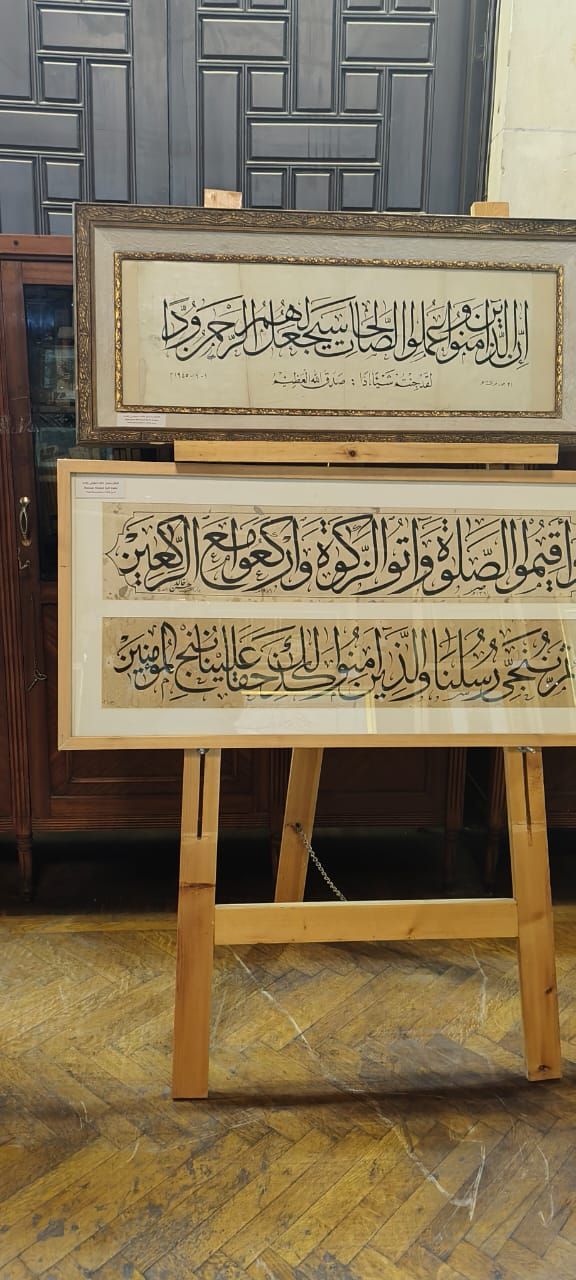 إن الذين آمنوا وعملوا الصالحات سيجعل لهم الرحمن ودا
لقد جئتم شيئا إدا : صدق الله العظيم
وأقيموا الصلوة وآتوا الزكوة واركعوا مع الراكعين
ننجي رسلنا والذين آمنوا كذلك حقا علينا ننج المؤمنين